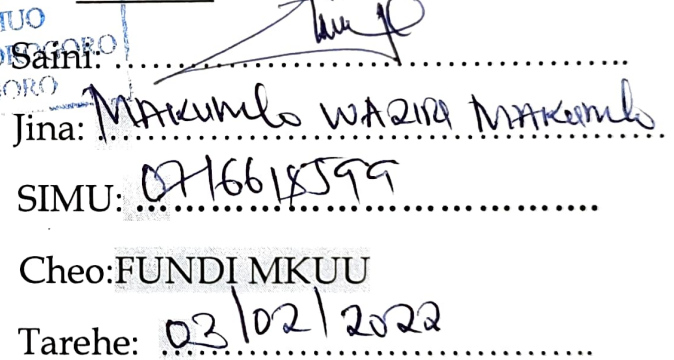 TUO
OROGORO
ORO
Saini: ........................................
Jina: MAKUMLO WAZIRI MAKUMLO
SIMU: 0716618599
Cheo:FUNDI MKUU
Tarehe: 03/02/2022